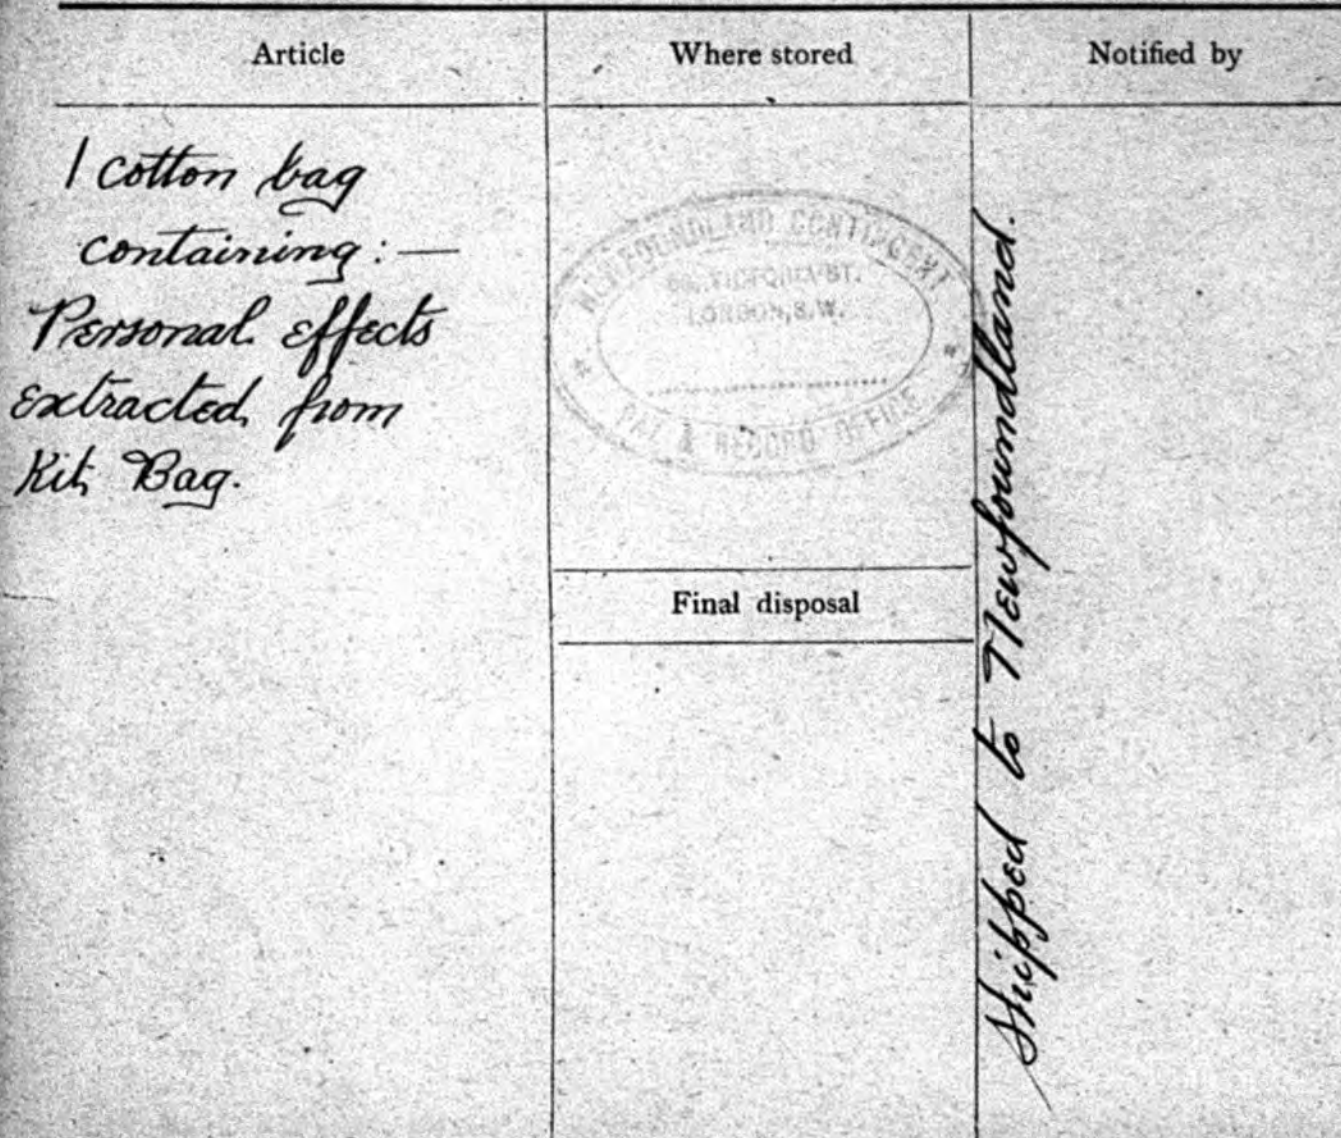 Article
Where stored
Notified by
1 cotton bag
containing : —
Personal effects
extracted from
Kit Bag.
NEWFOUNDLAND CONTINGENT
VICTORIA ST.
LONDON, S.W.
PAY & RECORD OFFICE
Final disposal
Shipped to Newfoundland.